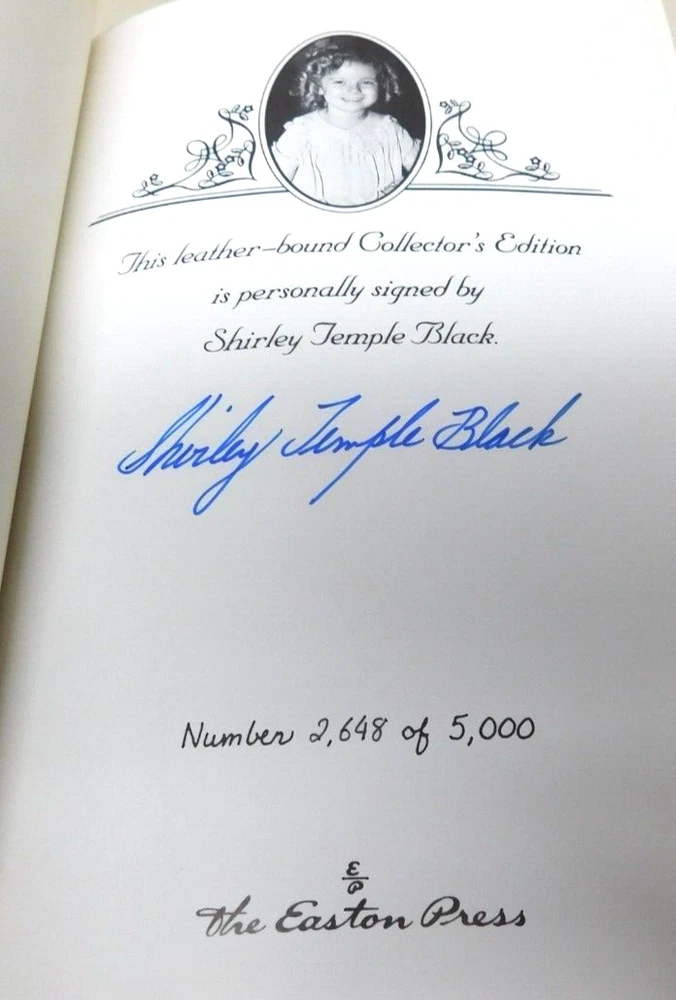 This leather-bound Collector's Edition
is personally signed by
Shirley Temple Black.
Shirley Temple Black
Number 2,648 of 5,000
E
P
The Easton Press